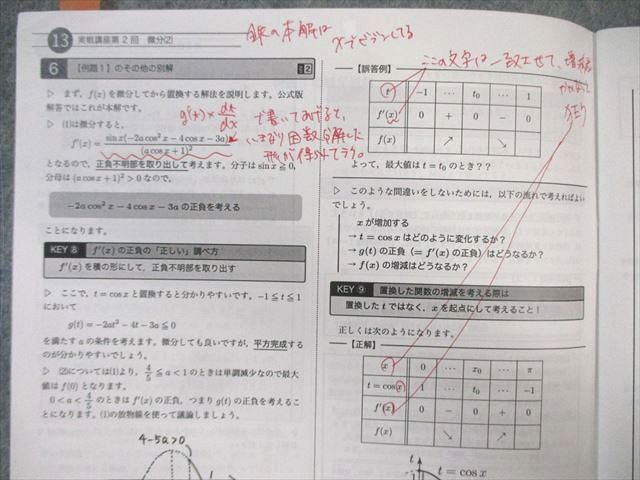 13 実戦講座第2回 微分(2)
6 【例題1】のその他の別解
▷ まず，f(x)を微分してから置換する解法を説明します．公式版
解答ではこれが本解です．
▷ (1)は微分すると，
f'(x)=sin x(-2a cos²x-4cos x-3a)/(a cos x+1)²
となるので，正負不明部を取り出して考えます．分子は sin x≧0，
分母は (a cos x+1)²>0 なので，
-2a cos²x-4cos x-3a の正負を考える
ことになります．
KEY⑧ f'(x)の正負の「正しい」調べ方
f'(x)を積の形にして，正負不明部を取り出す
▷ ここで，t=cos x と置換すると分かりやすいです．-1≦t≦1
において
g(t)=-2at²-4t-3a≦0
を満たす a の条件を考えます．微分しても良いですが，平方完成する
のが分かりやすいでしょう．
▷ (2)については(1)より，4/5≦a<1 のときは単調減少なので最大
値は f(0) となります．
0<a<4/5 のときは f'(x) の正負，つまり g(t) の正負を考えるこ
とになります．(1)の放物線を使って議論しましょう．
4-5a>0
g'(x)×dt/dx
【誤答例】
t -1 … t₀ … 1
f'(x) 0 + 0 - 0
f(x) ↗ ↘
よって，最大値は t=t₀ のとき？？
▷ このような間違いをしないためには，以下の流れで考えればよい
でしょう．
x が増加する
→ t=cos x はどのように変化するか？
→ g(t) の正負(=f'(x) の正負)はどうなるか？
→ f(x) の増減はどうなるか？
KEY⑨ 置換した関数の増減を考える際は
置換した t ではなく，x を起点にして考えること！
正しくは次のようになります．
【正解】
x 0 … x₀ … π
t=cos x 1 … t₀ … -1
f'(x) 0 - 0 + 0
f(x) ↘ ↗
t
t=cos x